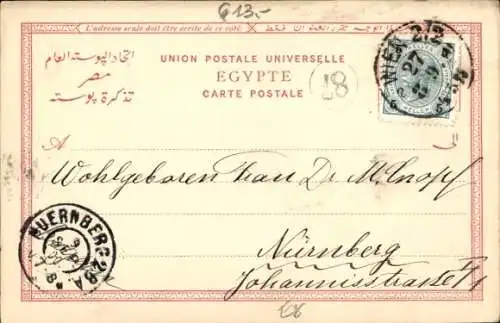 G13.-
L'adresse seule doit être écrite de ce côté.
UNION POSTALE UNIVERSELLE
اتحاد البوستة العام
EGYPTE
مصر
CARTE POSTALE
تذكرة بوستة
WIEN 2/2
27
9
18
A
Wohlgeboren Frau Dr M. Knopf
NUERNBERG 2. B.A.
Nürnberg
Johannisstrasse